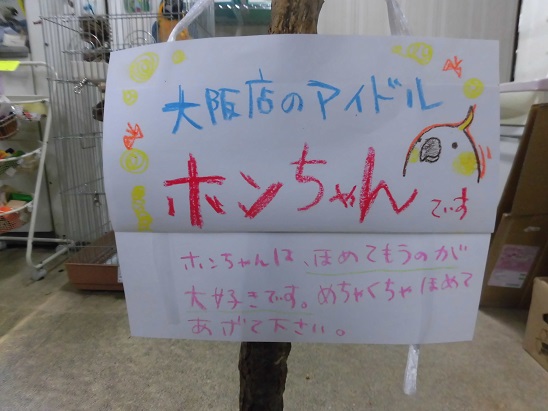 大阪店のアイドル
ホンちゃんです
ホンちゃんは、ほめてもうのが
大好きです。めちゃくちゃほめて
あげて下さい。